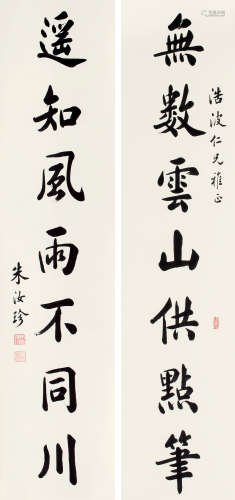 浩波仁兄雅正
無數雲山供點筆
遥知風雨不同川
朱汝珍